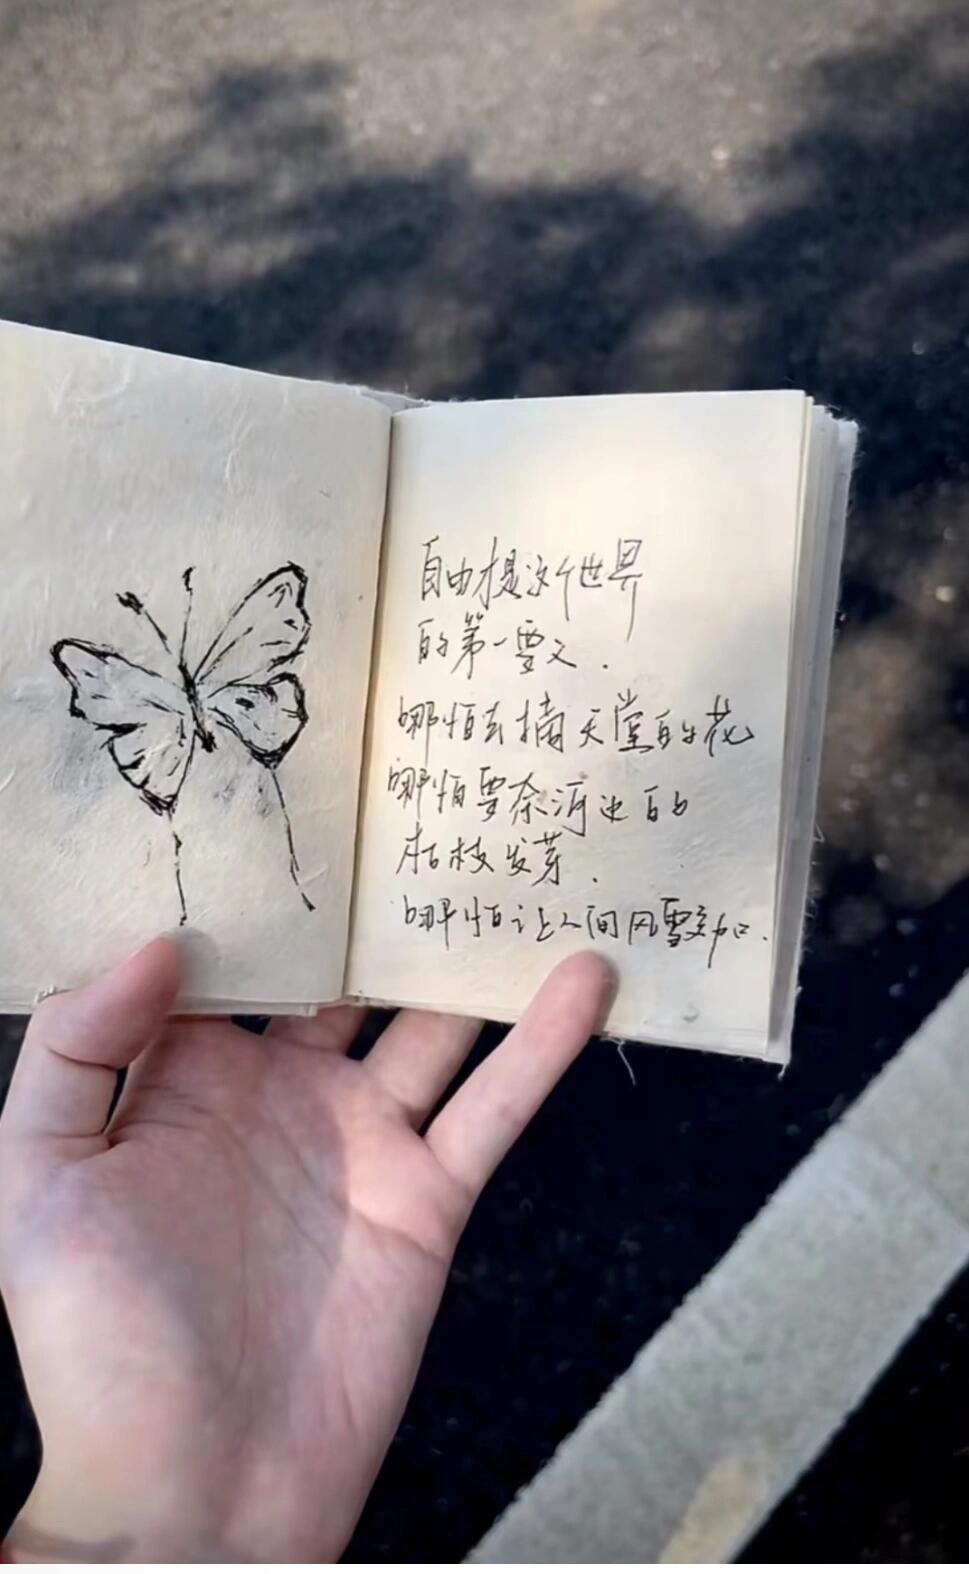 自由才是这个世界
的第一要义.
哪怕去摘天堂的花
哪怕要奈河边的
枯枝发芽.
哪怕让人间风雪交加.